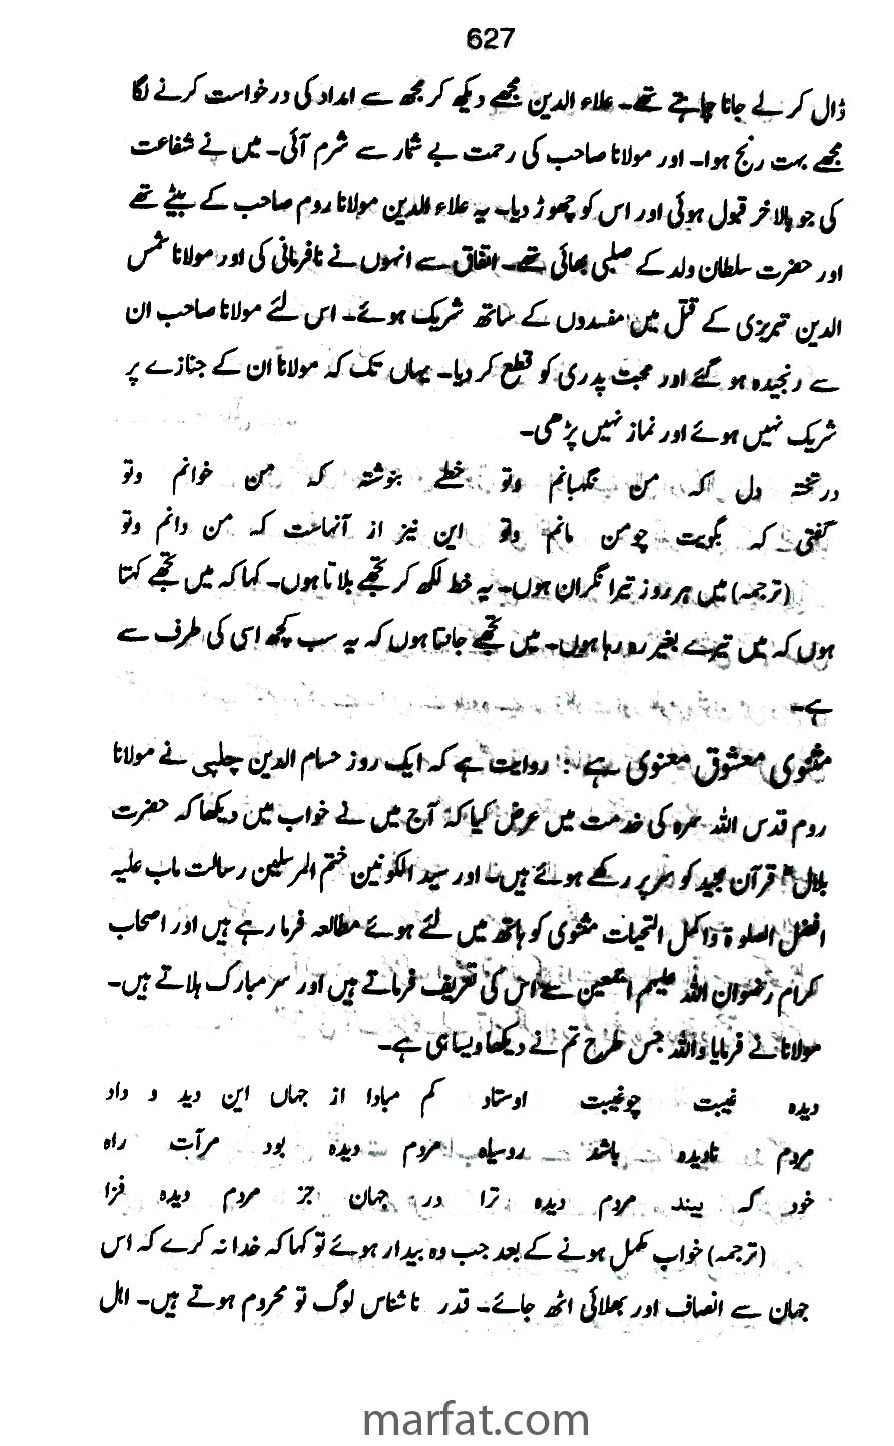 627
ڈال کر لے جانا چاہتے تھے۔ علاء الدین مجھے دیکھ کر مجھ سے امداد کی درخواست کرنے لگا
مجھے بہت رنج ہوا۔ اور مولانا صاحب کی رحمت بے شمار سے شرم آئی۔ میں نے شفاعت
کی جو بالاخر قبول ہوئی اور اس کو چھوڑ دیا۔ یہ علاء الدین مولانا روم صاحب کے بیٹے تھے
اور حضرت سلطان ولد کے صلبی بھائی تھے۔ اتفاق سے انہوں نے نافرمانی کی اور مولانا شمس
الدین تبریزی کے قتل میں مفسدوں کے ساتھ شریک ہوئے۔ اس لئے مولانا صاحب ان
سے رنجیدہ ہو گئے اور محبت پدری کو قطع کر دیا۔ یہاں تک کہ مولانا ان کے جنازے پر
شریک نہیں ہوئے اور نماز نہیں پڑھی۔
در تختہ دل کہ من نگہبانم وتو خطے بنوشتہ کہ من خوانم وتو
گفتی کہ بگویت چومن مانم وتو این نیز از آنہاست کہ من دانم وتو
(ترجمہ) میں ہر روز تیرا نگران ہوں۔ یہ خط لکھ کر تجھے بلاتا ہوں۔ کہا کہ میں تجھے کہتا
ہوں کہ میں تیرے بغیر رہ رہا ہوں۔ میں تجھے جانتا ہوں کہ یہ سب کچھ اسی کی طرف سے
ہے۔
مثنوی معشوق معنوی ہے : روایت ہے کہ ایک روز حسام الدین چلپی نے مولانا
روم قدس اللہ سرہ کی خدمت میں عرض کیا کہ آج میں نے خواب میں دیکھا کہ حضرت
بلالؓ قرآن مجید کو سر پر رکھے ہوئے ہیں۔ اور سید الکونین ختم المرسلین رسالت ماب علیہ
افضل الصلوۃ واکمل التحیات مثنوی کو ہاتھ میں لئے ہوئے مطالعہ فرما رہے ہیں اور اصحاب
کرام رضوان اللہ علیہم اجمعین سے اس کی تعریف فرماتے ہیں اور سر مبارک ہلاتے ہیں۔
مولانا نے فرمایا واللہ جس طرح تم نے دیکھا ویسا ہی ہے۔
دیدہ غیبت چوغیبت اوستاد کم مبادا از جہاں این دید و داد
مردم نادیدہ باشد روسیاہ مردم دیدہ بود مرآت راہ
خود کہ بیند مردم دیدہ ترا در جہان جز مردم دیدہ فزا
(ترجمہ) خواب مکمل ہونے کے بعد جب وہ بیدار ہوئے تو کہا کہ خدا نہ کرے کہ اس
جہان سے انصاف اور بھلائی اٹھ جائے۔ قدر ناشناس لوگ تو محروم ہوتے ہیں۔ اہل
marfat.com